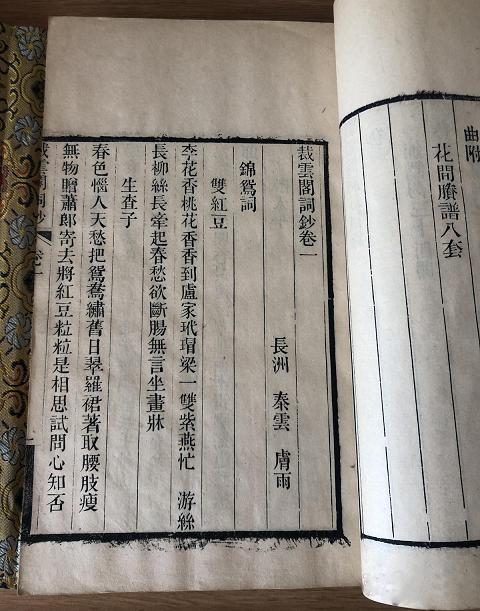 曲附
花間賸譜八套
裁雲閣詞鈔卷一
長洲 秦雲 膚雨
錦鴛詞
雙紅豆
李花香桃花香香到盧家玳瑁梁一雙紫燕忙 游絲
長柳絲長牽起春愁欲斷腸無言坐畫牀
生查子
春色惱人天愁把鴛鴦繡舊日翠羅裙著取腰肢瘦
無物贈蕭郎寄去將紅豆粒粒是相思試問心知否
裁雲閣詞鈔 卷一